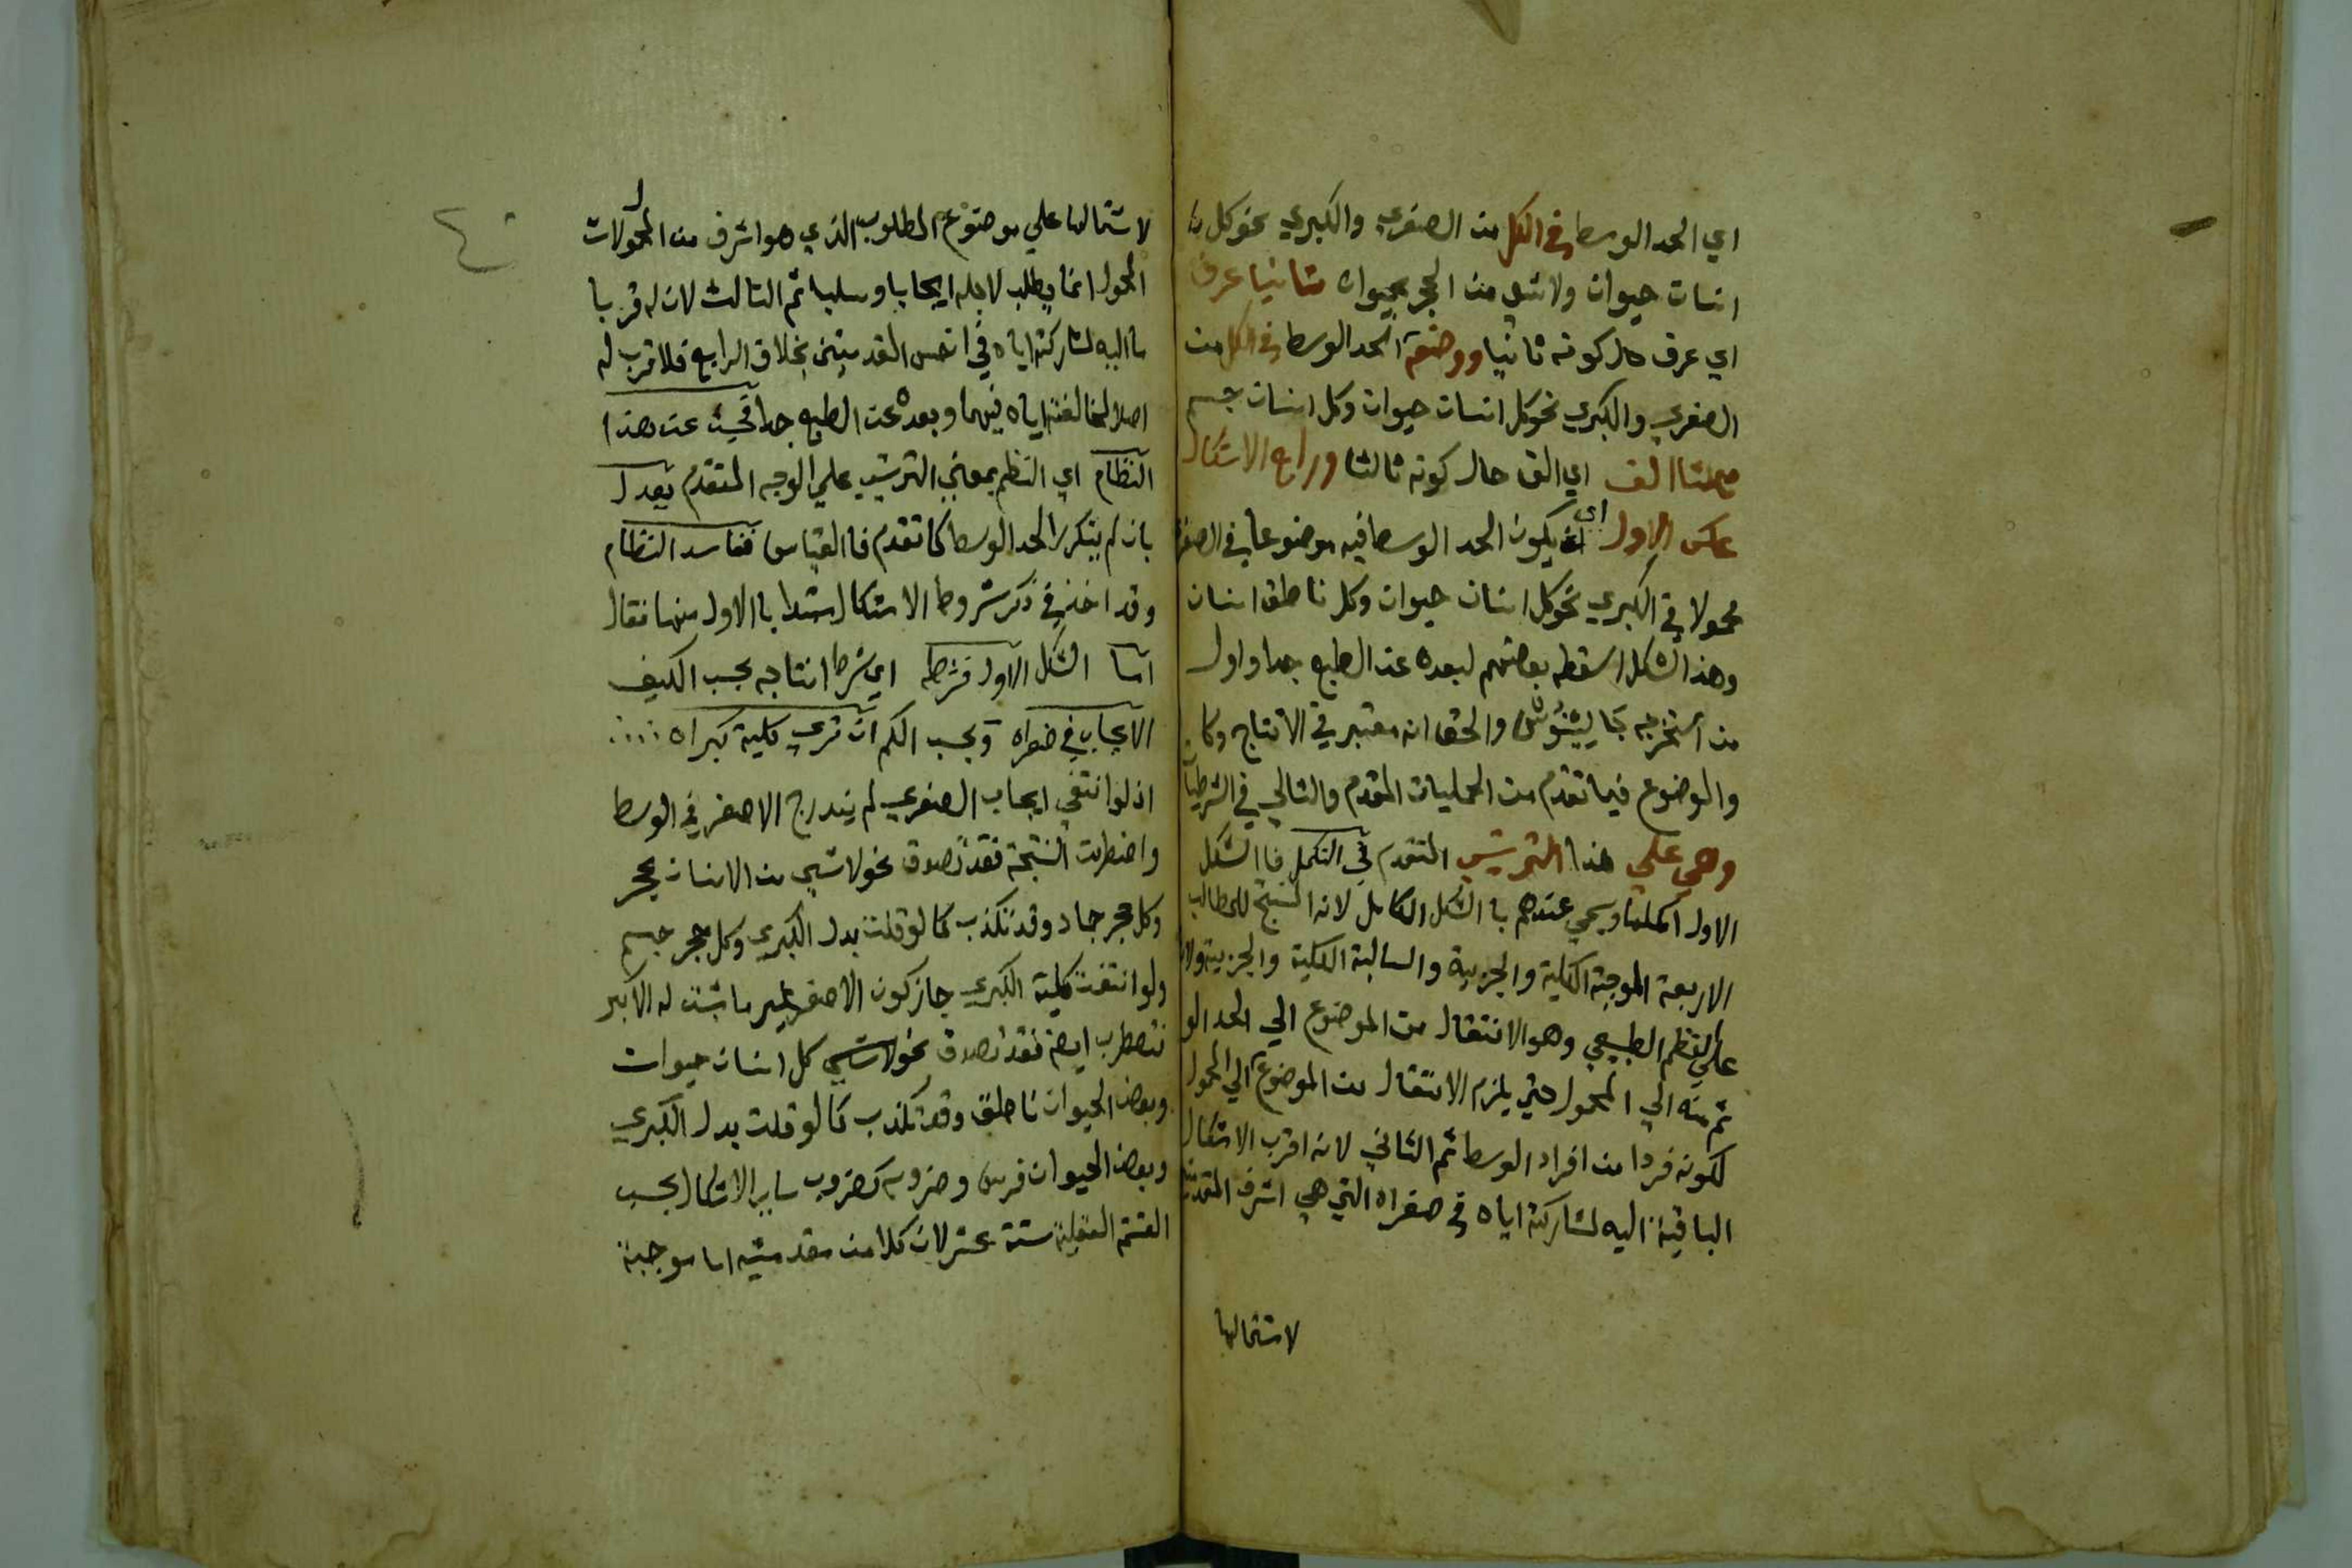 اي الحد الوسط في الكل من الصغري والكبري نحو كل
انسان حيوان ولا شي من الحجر بحيوان ثانيا عرف
اي عرف حال كونه ثانيا ووضعه الحد الوسط في الكل من
الصغري والكبري نحو كل انسان حيوان وكل انسان جسم
ثالثا الف اي الف حال كونه ثالثا ورابع الاشكال
عكس الاول اي ان يكون الحد الوسط فيه موضوعا في الصغري
محمولا في الكبري نحو كل انسان حيوان وكل ناطق انسان
وهذا الشكل اسقطه بعضهم لبعده عن الطبع جدا واول
من استخرجه جالينوس والحق انه معتبر في الانتاج وكا
والموضوع فيما تقدم من الحمليات المقدم والتالي في الشرطيات
وهي علي هذا الترتيب المتقدم في التكمل فا الشكل
الاول اكملها ويسمي عندهم با الشكل الكامل لانه المنتج للمطالب
الاربعة الموجبة الكلية والجزيية والسالبة الكلية والجزيية ولانه
علي النظم الطبيعي وهو الانتقال من الموضوع الي الحد الو
ثم منه الي المحمول حتي يلزم الانتقال من الموضوع الي المحمول
لكونه فردا من افراد الوسط ثم الثاني لانه اقرب الاشكال
الباقية اليه لمشاركته اياه في صغراه التي هي اشرف المقدمتين
لاشتمالها
لاشتمالها علي موضوع المطلوب الذي هو اشرف من المحمول لان
المحمول انما يطلب لاجله ايجابا وسلبا ثم الثالث لان له قربا
ما اليه لمشاركته اياه في اخس المقدمتين بخلاف الرابع فلا قرب له
اصلا لمخالفته اياه فيهما وبعده عن الطبع جدا فحيث عن هذا
النظام اي النظم بمعني الترتيب علي الوجه المتقدم يعدل
بان لم يتكرر الحد الوسط كما تقدم فا القياس ففاسد النظام
وقد اخذ في ذكر شروط الاشكال مبتدا با الاول منها فقال
اما الشكل الاول فشرطه اي شرط انتاجه بحسب الكيف
الايجاب في صغراه وبحسب الكم ان تري كلية كبراه
اذ لو انتفي ايجاب الصغري لم يندرج الاصغر في الوسط
واضطربت النتيجة فقد تصدق نحو لا شي من الانسان بحجر
وكل حجر جماد وقد تكذب كما لو قلت بدل الكبري وكل حجر جسم
ولو انتفت كلية الكبري جاز كون الاصغر غير ما ثبت له الاكبر
فتضطرب ايضا فقد تصدق نحو لا شي كل انسان حيوان
وبعض الحيوان ناطق وقد تكذب كما لو قلت بدل الكبري
وبعض الحيوان فرس وضروبه كضروب ساير الاشكال بحسب
القسمة العقلية ستة عشر لان كلا من مقدمتيه اما موجبة